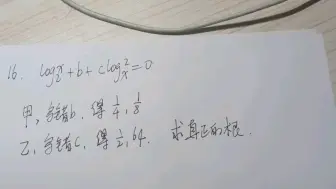 16. log₂ˣ + b + c logₓ² = 0
甲，写错b，得 1/4，1/8
乙，写错c，得 1/2，64. 求真正的根.